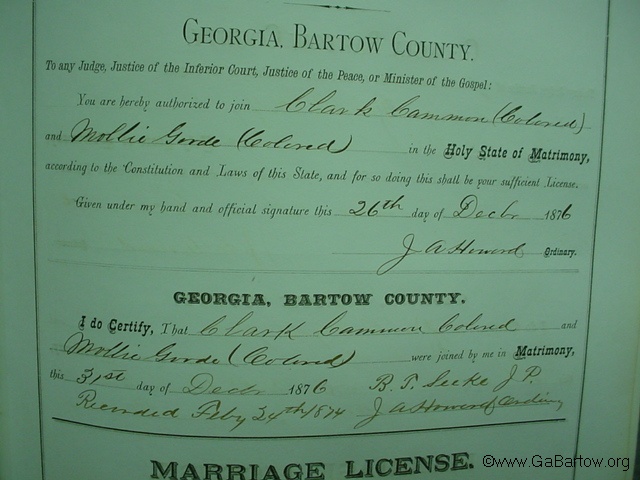 GEORGIA, BARTOW COUNTY.
To any Judge, Justice of the Inferior Court, Justice of the Peace, or Minister of the Gospel:
You are hereby authorized to join Clark Cammon (Colored)
and Mollie Gorde (Colored) in the Holy State of Matrimony,
according to the Constitution and Laws of this State, and for so doing this shall be your sufficient License.
Given under my hand and official signature this 26th day of Decbr 1876
J A Howard Ordinary.
GEORGIA, BARTOW COUNTY.
I do Certify, That Clark Cammon Colored and
Mollie Gorde (Colored) were joined by me in Matrimony,
this 31st day of Decbr 1876 B. T. J P.
Recorded Feby 24th J A Howard Ordinary
MARRIAGE LICENSE.
©www.GaBartow.org